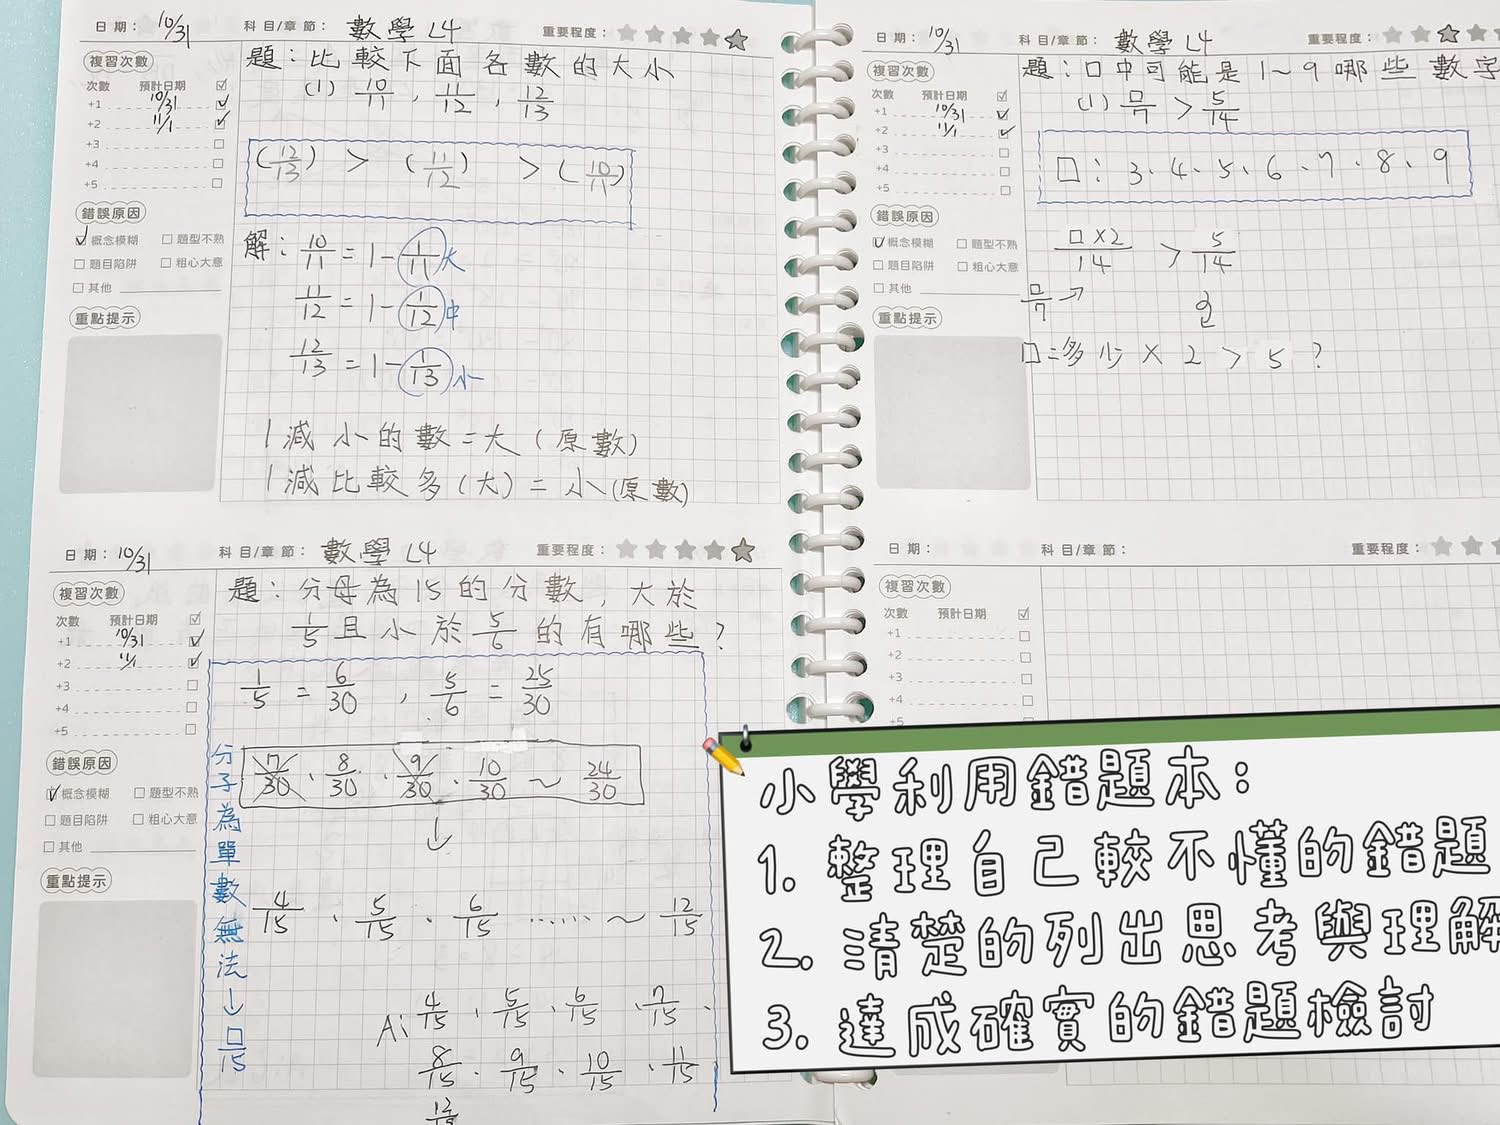 日期：10/31 科目/章節：數學 L4 重要程度：
複習次數
次數 預計日期
+1 10/31
+2 11/1
+3
+4
+5
錯誤原因
概念模糊 題型不熟
題目陷阱 粗心大意
其他
重點提示
題：比較下面各數的大小
(1) 10/11 , 11/12 , 12/13
(12/13) > (11/12) > (10/11)
解：10/11 = 1- 1/11 大
11/12 = 1- 1/12 中
12/13 = 1- 1/13 小
1減小的數=大(原數)
1減比較多(大)=小(原數)
日期：10/31 科目/章節：數學 L4 重要程度：
複習次數
次數 預計日期
+1 10/31
+2 11/1
+3
+4
+5
錯誤原因
概念模糊 題型不熟
題目陷阱 粗心大意
其他
重點提示
題：□中可能是1~9哪些數字
(1) □/7 > 5/14
□：3、4、5、6、7、8、9
□×2/14 > 5/14
□/7
□=多少×2 > 5 ?
日期：10/31 科目/章節：數學 L4 重要程度：
複習次數
次數 預計日期
+1 10/31
+2 11/1
+3
+4
+5
錯誤原因
概念模糊 題型不熟
題目陷阱 粗心大意
其他
重點提示
題：分母為15的分數，大於
1/5且小於5/6的有哪些？
1/5 = 6/30 , 5/6 = 25/30
7/30、8/30、9/30、10/30 ~ 24/30
分子為單數無法↓□/15
4/15、5/15、6/15 …… ~ 12/15
A: 4/15、5/15、6/15、7/15、
8/15、9/15、10/15、11/15
日期： 科目/章節： 重要程度：
複習次數
次數 預計日期
+1
+2
+3
+4
+5
小學利用錯題本：
1. 整理自己較不懂的錯題
2. 清楚的列出思考與理解
3. 達成確實的錯題檢討